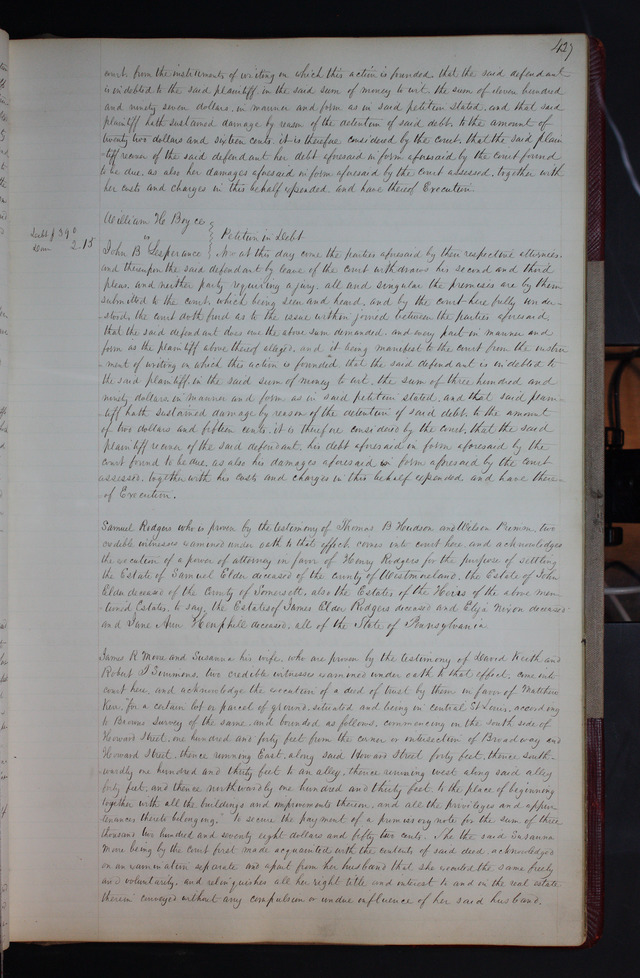 427
court from the instruments of writing on which this action is founded, that the said defendant
is indebted to the said plaintiff in the said sum of money to wit the sum of eleven hundred
and ninety seven dollars, in manner and form as in said petition stated, and that said
plaintiff hath sustained damage by reason of the detention of said debt, to the amount of
twenty two dollars and sixteen cents. it is therefore considered by the court, that the said plain
tiff recover of the said defendant her debt aforesaid in form aforesaid by the court found
to be due, as also her damages aforesaid in form aforesaid by the court assessed, together with
her costs and charges in this behalf expended and have thereof Execution.
William H Boyce
Debt $390
Petition in Debt
Dam 2.15
John B Lesperance Now at this day come the parties aforesaid by their respective attornies,
and thereupon the said defendant by leave of the court withdraws his second and third
pleas, and neither party requiring a jury, all and singular the premises are by them
submitted to the court, which being seen and heard, and by the court here fully under-
stood, the court doth find as to the issue within joined between the parties aforesaid,
that the said defendant does owe the above sum demanded, and every part in manner and
form as the plaintiff above thereof alleged, and it being manifest to the court from the instru
ment of writing on which this action is founded that the said defendant is indebted to
the said plaintiff, in the said sum of money to wit, the sum of three hundred and
ninety dollars in manner and form as in said petition stated, and that said plain-
tiff hath sustained damage by reason of the detention of said debt, to the amount
of two dollars and fifteen cents. it is therefore considered by the court, that the said
plaintiff recover of the said defendant, his debt aforesaid in form aforesaid by the
court found to be due, as also his damages aforesaid in form aforesaid by the court
assessed, together with his costs and charges in this behalf expended and have there-
of Execution.
Samuel Rodgers who is proven by the testimony of Thomas B Hudson and Wilson Primm, two
credible witnesses examined under oath to that effect, comes into court here, and acknowledges
the execution of a power of attorney in favor of Henry Rodgers for the purpose of settling
the Estate of Samuel Elder deceased of the county of Westmoreland, the Estate of John
Elder deceased of the County of Somersett, also the Estates of the Heirs of the above men
tioned Estates, to say, the Estates of James Elder Rodgers deceased and Eliza Nixon deceased
and Jane Ann Hemphill deceased, all of the State of Pennsylvania
James R Moore and Susanna his wife, who are proven by the testimony of David Keith and
Robert Simmons, two credible witnesses examined under oath to that effect, come into
court here, and acknowledge the execution of a deed of trust by them in favor of Matthew
"for a certain lot or parcel of ground, situated and being in central St Louis, according
to Browns survey of the same, and bounded as follows, commencing on the south side of
Howard Street, one hundred and forty feet from the corner or intersection of Broadway and
Howard Street, thence running East, along said Howard Street forty feet, thence south-
wardly one hundred and thirty feet to an alley, thence running west along said alley
forty feet, and thence northwardly one hundred and thirty feet, to the place of beginning
together with all the buildings and improvements thereon, and all the privileges and appur
tenances thereto belonging," To secure the payment of a promissory note for the sum of three
thousand two hundred and seventy eight dollars and fifty two cents. She the said Susanna
Moore being by the court first made acquainted with the contents of said deed, acknowledged
on an examination separate and apart from her husband that she executed the same freely
and voluntarily, and relinquishes all her right title and interest to and in the real estate
therein conveyed without any compulsion or undue influence of her said husband.